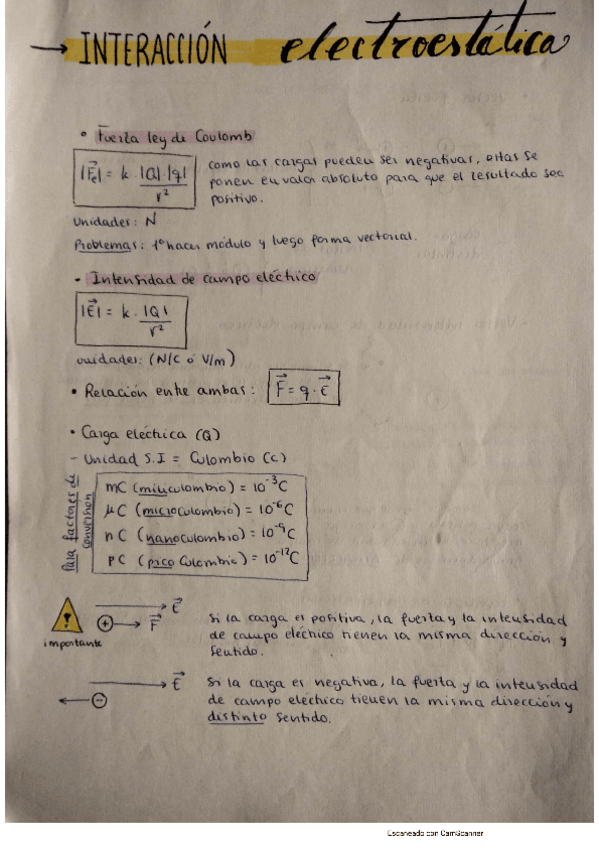 → INTERACCIÓN electroestática
• Fuerza ley de Coulomb
|F⃗e| = k · |Q|·|q| / r²
como las cargas pueden ser negativas, estas se
ponen en valor absoluto para que el resultado sea
positivo.
Unidades: N
Problemas: 1º hacer módulo y luego forma vectorial.
- Intensidad de campo eléctrico
|E⃗| = k · |Q| / r²
unidades: (N/C ó V/m)
• Relación entre ambas: F⃗ = q · E⃗
• Carga eléctrica (Q)
- Unidad S.I = Culombio (C)
Para factores de
conversión
mC (miliculombio) = 10⁻³C
μC (microculombio) = 10⁻⁶C
nC (nanoculombio) = 10⁻⁹C
pC (pico Culombio) = 10⁻¹²C
! importante
E⃗
+ → F⃗
Si la carga es positiva, la fuerza y la intensidad
de campo eléctrico tienen la misma dirección y
sentido.
E⃗
← −
Si la carga es negativa, la fuerza y la intensidad
de campo eléctrico tienen la misma dirección y
distinto sentido.
Escaneado con CamScanner